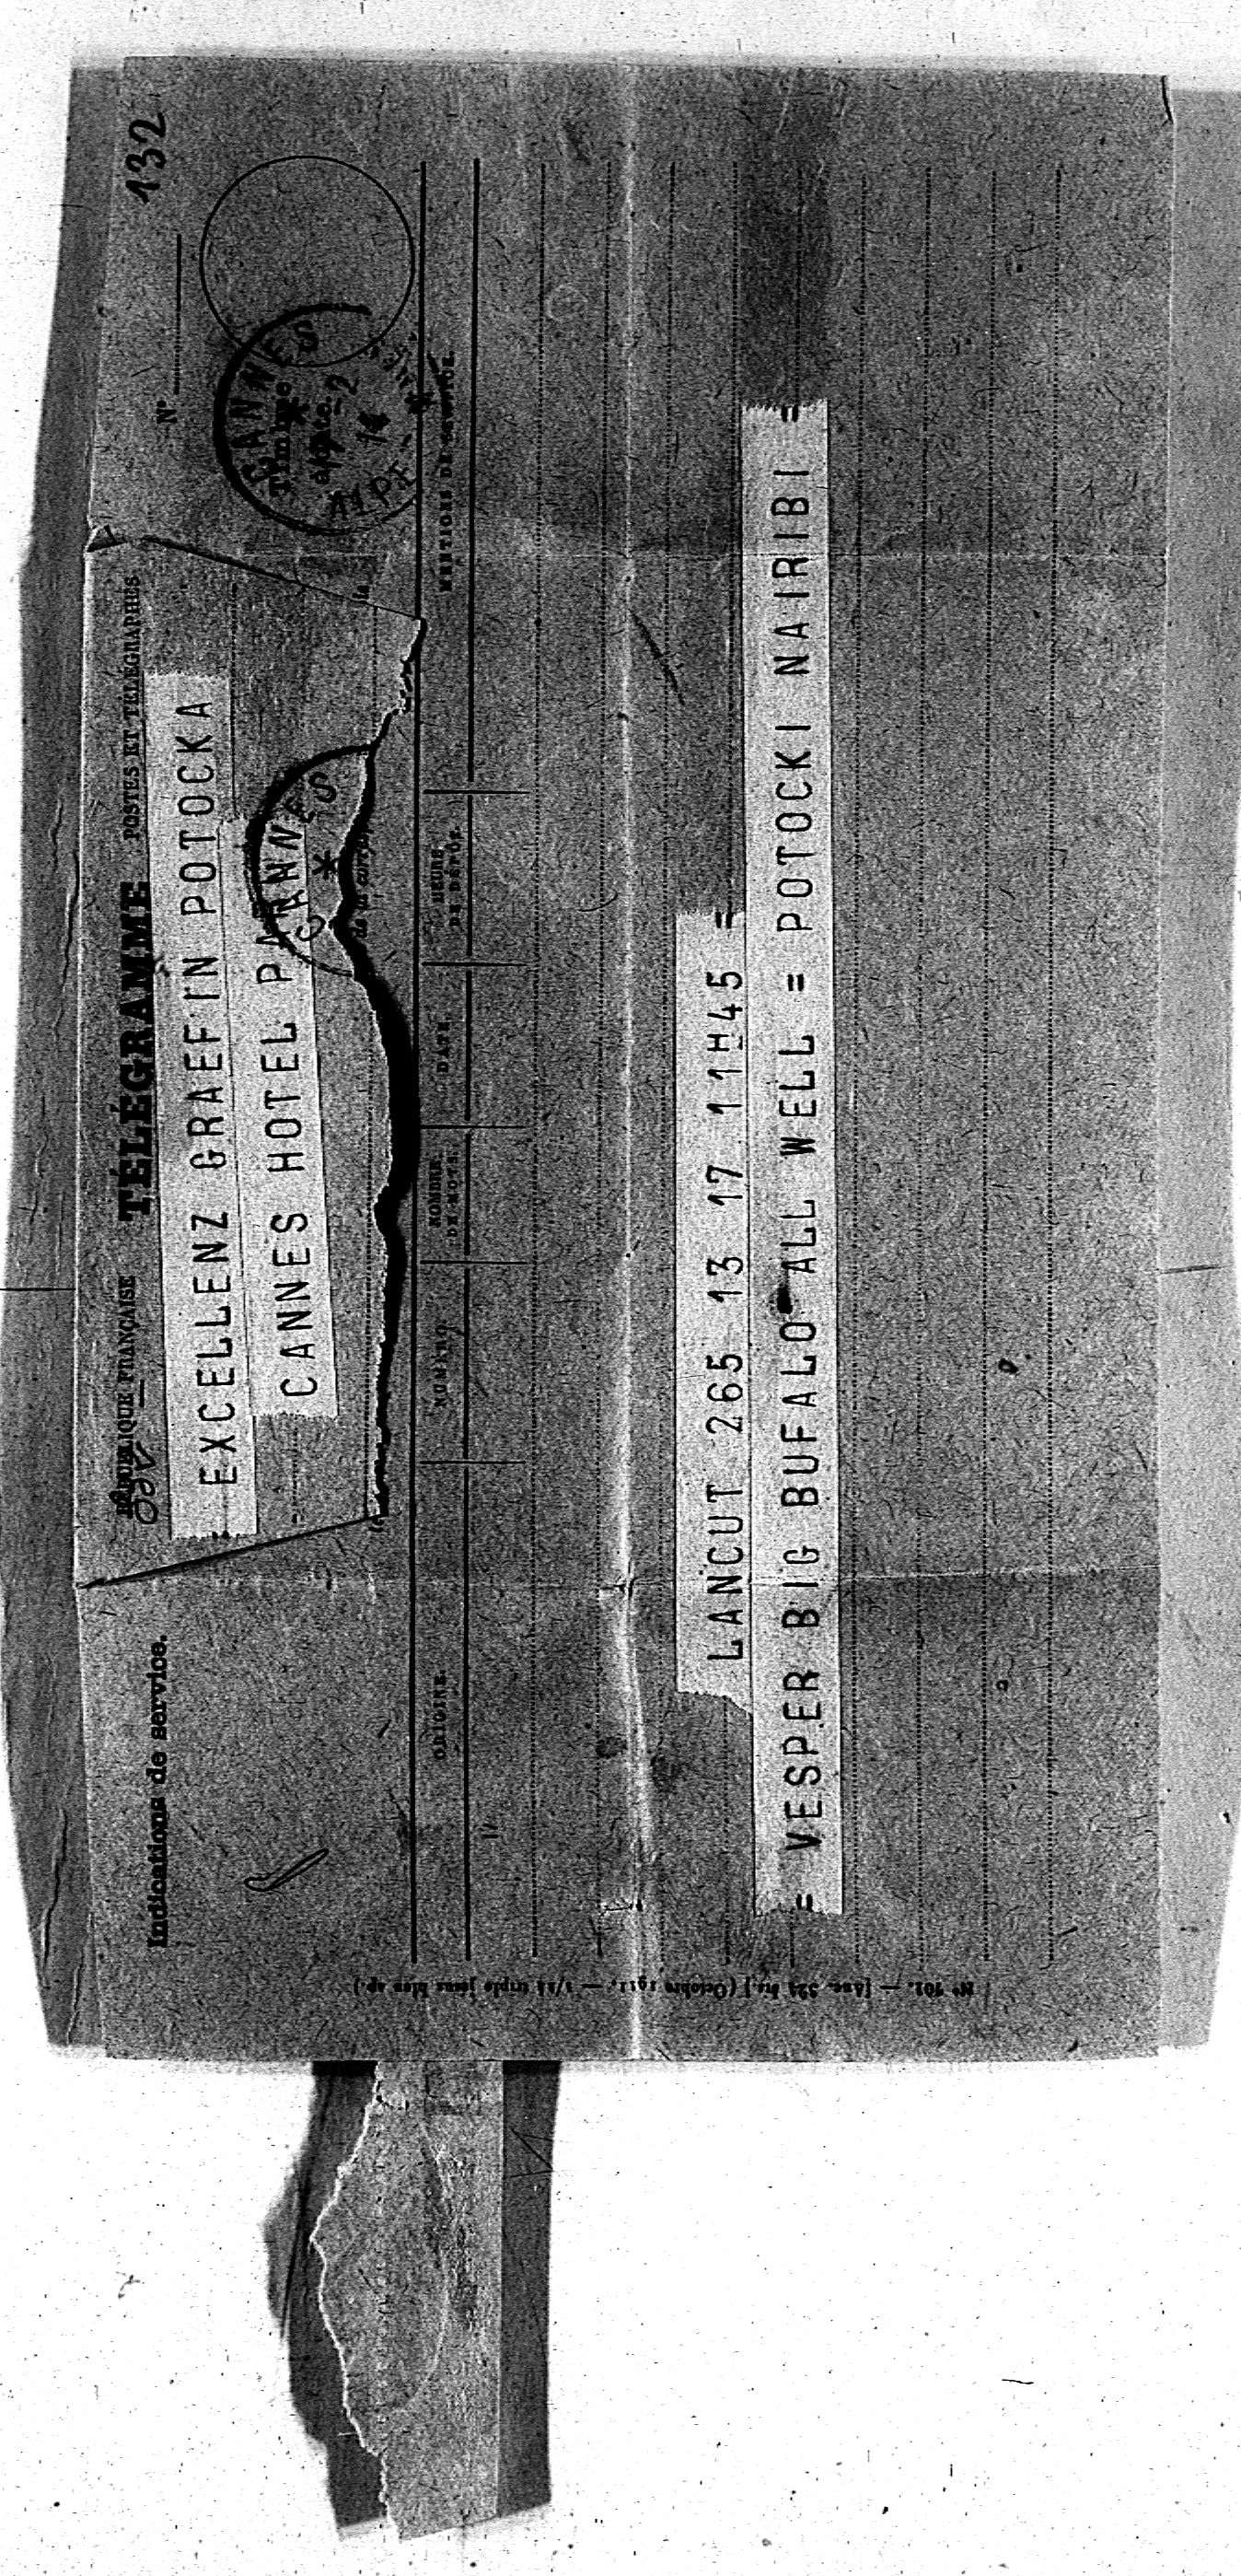 132
Indications de service.
RÉPUBLIQUE FRANÇAISE TÉLÉGRAMME POSTES ET TÉLÉGRAPHES
N°
EXCELLENZ GRAEFIN POTOCKA
CANNES HOTEL
CANNES
CANNES
Timbre
ORIGINE. NUMÉRO NOMBRE DE MOTS. DATE. HEURE DE DÉPÔT. MENTIONS DE SERVICE.
LANCUT 265 13 17 11H45 =
= VESPER BIG BUFALO ALL WELL = POTOCKI NAIRIBI =
N° 701. — [Anc. 324 bis.] (Octobre 1911. — 1/24 triple jésus bleu ap.)